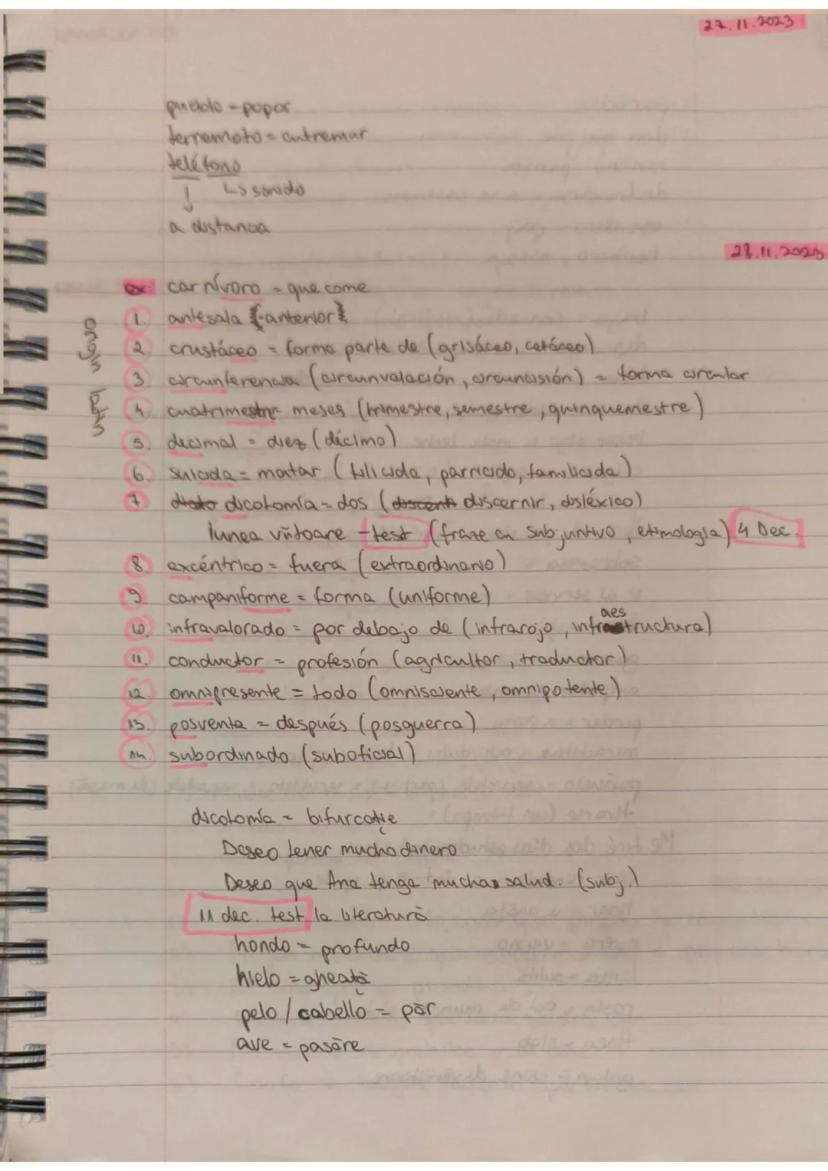 27.11.2023
pueblo = popor
terremoto = cutremur
teléfono
↳ sonido
↓
a distancia
28.11.2023
ex: carnívoro = que come
1. antesala {anterior}
2. crustáceo = forma parte de (grisáceo, cetáceo)
3 circunferencia (circunvalación, circuncisión) = forma circular
4. cuatrimestre meses (trimestre, semestre, quinquemestre)
5. decimal = diez (décimo)
6. suicida = matar (filicida, parricida, familicida)
7 dicotomía = dos (discernir, disléxico)
lunea viitoare - test (fraze cu subjuntivo, etimologia) 4 Dec.
8 excéntrico = fuera (extraordinario)
9 campaniforme = forma (uniforme)
10. infravalorado = por debajo de (infrarojo, infraestructura)
11. conductor = profesión (agricultor, traductor)
12 omnipresente = todo (omnisciente, omnipotente)
13. posventa = después (posguerra)
14. subordinado (suboficial)
dicotomía = bifurcație
Deseo tener mucho dinero
Deseo que Ana tenga mucha salud. (subj.)
11 dec. test la literatură
hondo = profundo
hielo = gheață
pelo / cabello = păr
ave = pasăre